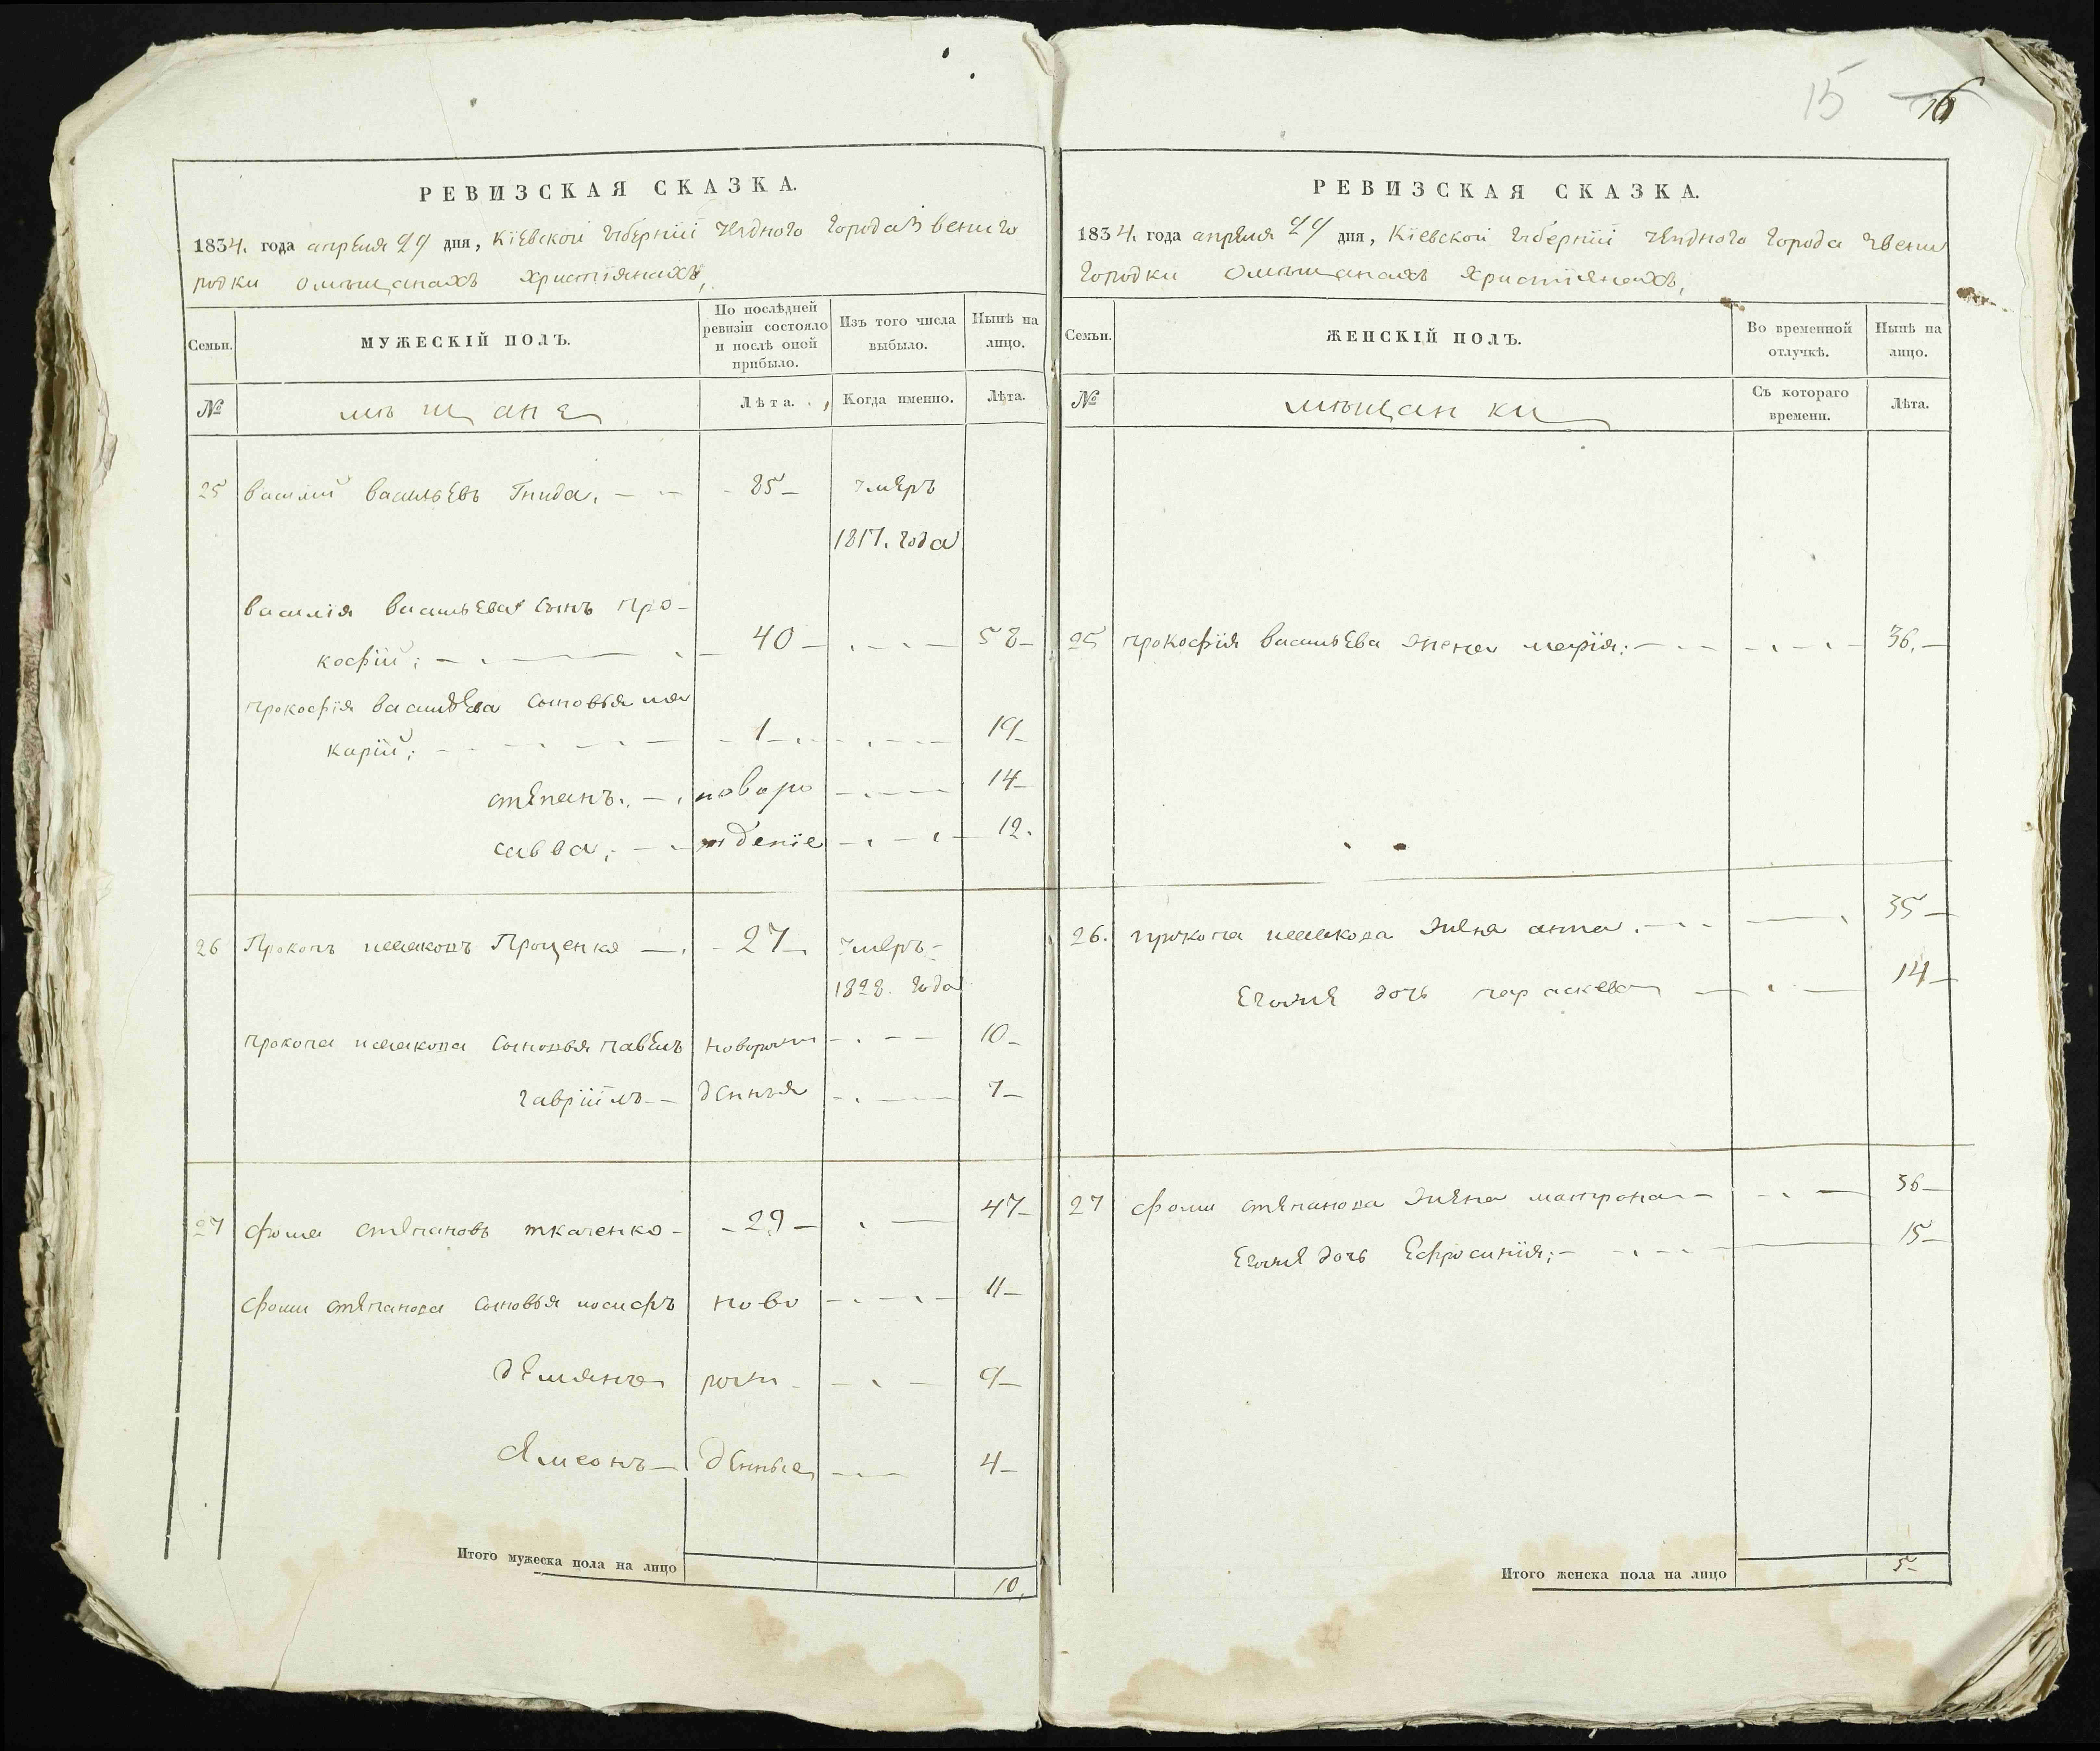 15 16
РЕВИЗСКАЯ СКАЗКА.
1834. года апреля 29 дня, Кіевской губерніи уездного города Звениго
родки о мѣщанахъ христіянахъ,
Семьи.
МУЖЕСКІЙ ПОЛЪ.
По послѣдней ревизіи состояло и послѣ оной прибыло.
Изъ того числа выбыло.
Нынѣ на лицо.
№
мѣщане
Лѣта.
Когда именно.
Лѣта.
25 Василий васильевъ Гнида. 85 умеръ
1817. года
василія васильева сынъ про-
кофій; 40 58
прокофія васильева сыновья ма
карій; 1 19
степанъ. новоро 14
савва; ждение 12.
26 Прокопъ Проценко 27 умеръ
1828. года
прокопа сыновья павелъ новорож 10
гавріилъ денныя 7
27 фома степановъ ткаченко 29 47
фомы степанова сыновья иосифъ ново 11
демянъ рож 9
денные 4
Итого мужеска пола на лицо 10,
РЕВИЗСКАЯ СКАЗКА.
1834. года апреля 29 дня, Кіевской губерніи уездного города Звени
городки о мѣщанахъ христіянахъ,
Семьи.
ЖЕНСКІЙ ПОЛЪ.
Во временной отлучкѣ.
Нынѣ на лицо.
№
мѣщанки
Съ котораго времени.
Лѣта.
25 прокофія васильева жена марія; 36.
26. прокопа жена анна. 35
его же дочь параскева 14
27 фомы степанова жена матрона 36
его же дочь Ефросинія; 15
Итого женска пола на лицо 5